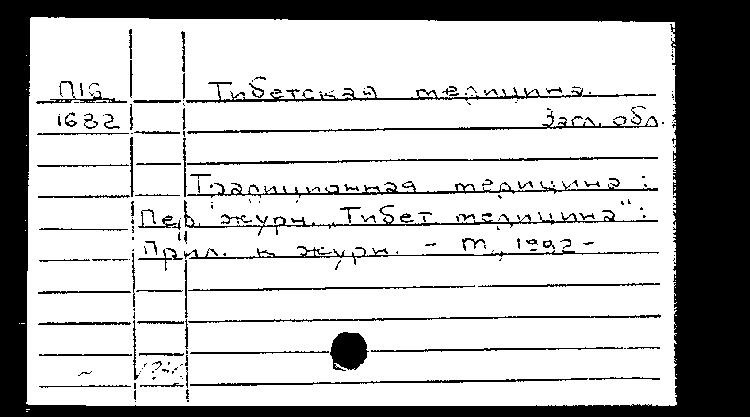 П16 Тибетская медицина.
1682 Загл. обл.
Традиционная медицина :
Пер. журн. „Тибет медицина" :
Прил. к журн. - М., 1992 -